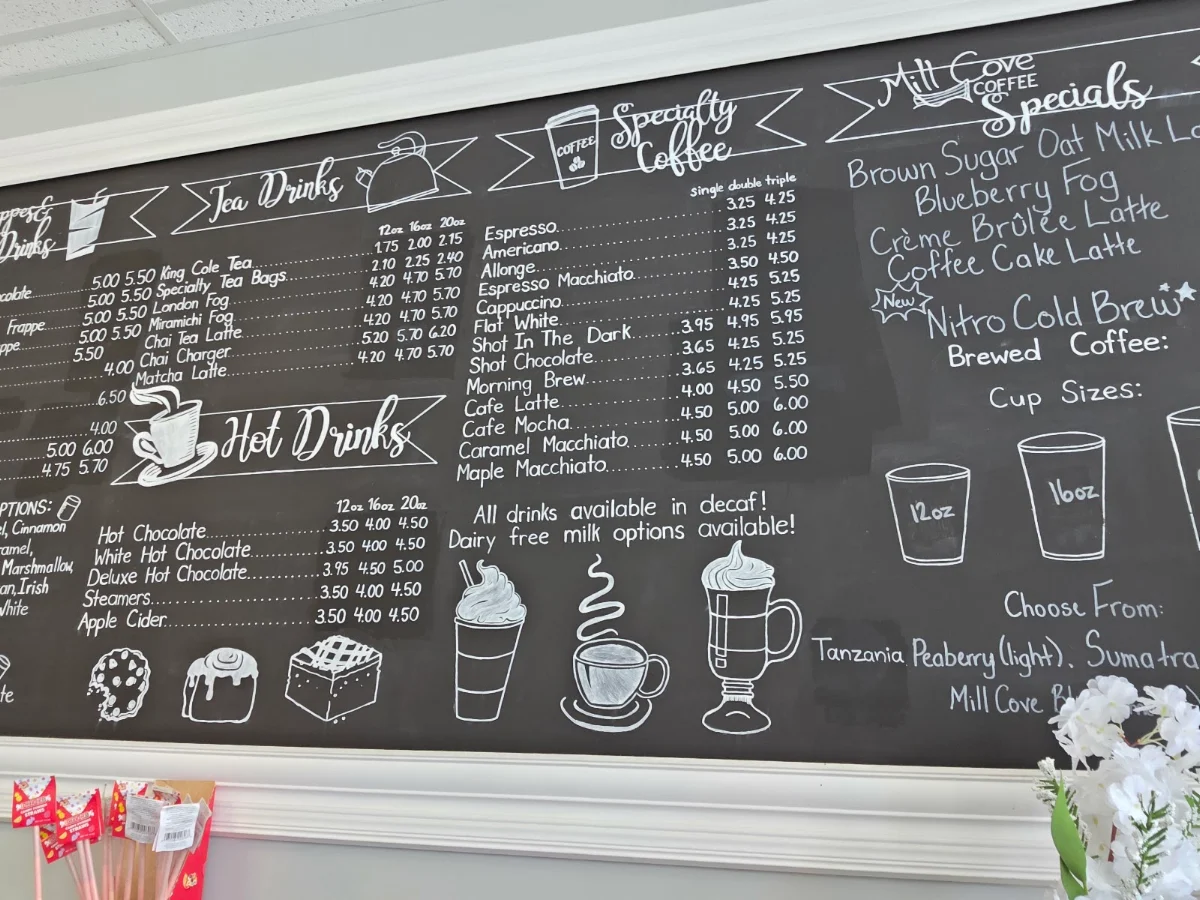 ppes&
Drinks
ocolate 5.00 5.50
5.00 5.50
Frappe 5.00 5.50
ppe 5.00 5.50
5.50
4.00
6.50
4.00
5.00 6.00
4.75 5.70
PTIONS:
el, Cinnamon
ramel,
Marshmallow,
an, Irish
White
te
Tea Drinks
12oz 16oz 20oz
King Cole Tea 1.75 2.00 2.15
Specialty Tea Bags 2.10 2.25 2.40
London Fog 4.20 4.70 5.70
Miramichi Fog 4.20 4.70 5.70
Chai Tea Latte 4.20 4.70 5.70
Chai Charger 5.20 5.70 6.20
Matcha Latte 4.20 4.70 5.70
Hot Drinks
12oz 16oz 20oz
Hot Chocolate 3.50 4.00 4.50
White Hot Chocolate 3.50 4.00 4.50
Deluxe Hot Chocolate 3.95 4.50 5.00
Steamers 3.50 4.00 4.50
Apple Cider 3.50 4.00 4.50
COFFEE
Specialty
Coffee
single double triple
Espresso 3.25 4.25
Americano 3.25 4.25
Allonge 3.25 4.25
Espresso Macchiato 3.50 4.50
Cappuccino 4.25 5.25
Flat White 4.25 5.25
Shot In The Dark 3.95 4.95 5.95
Shot Chocolate 3.65 4.25 5.25
Morning Brew 3.65 4.25 5.25
Cafe Latte 4.00 4.50 5.50
Cafe Mocha 4.50 5.00 6.00
Caramel Macchiato 4.50 5.00 6.00
Maple Macchiato 4.50 5.00 6.00
All drinks available in decaf!
Dairy free milk options available!
Mill Cove
COFFEE
Specials
Brown Sugar Oat Milk La
Blueberry Fog
Crème Brûlée Latte
Coffee Cake Latte
New
Nitro Cold Brew
Brewed Coffee:
Cup Sizes:
12oz
16oz
Choose From:
Tanzania Peaberry (light), Sumatra
Mill Cove B